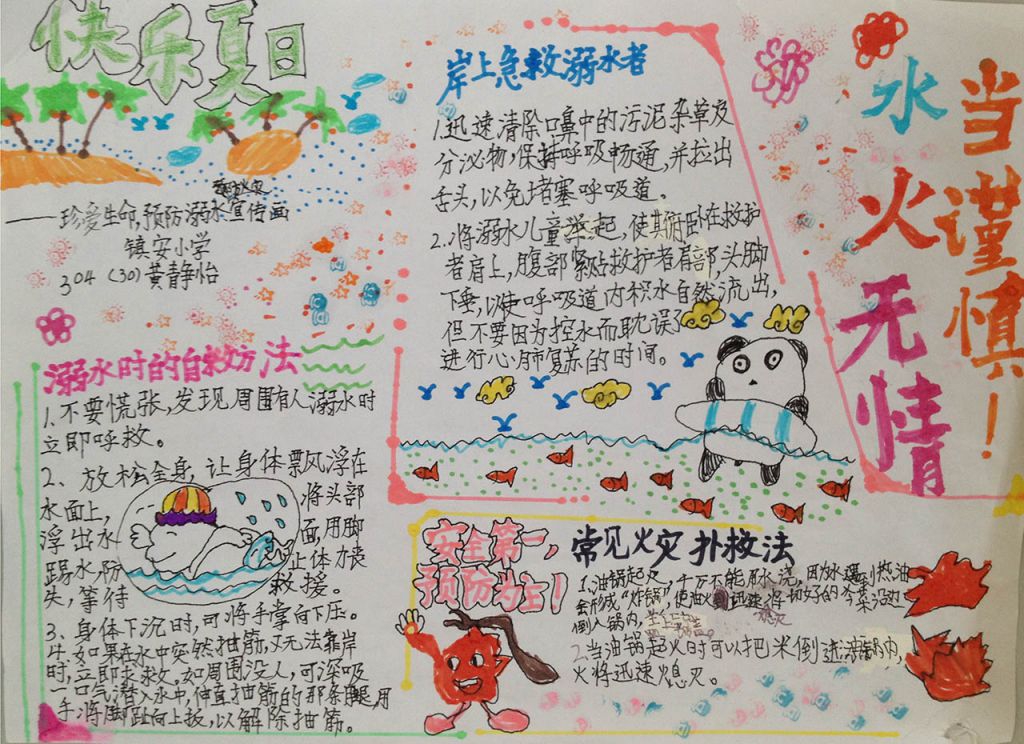 快乐夏日
——珍爱生命,预防溺水宣传画
镇安小学
304 (30) 黄静怡
溺水时的自救方法
1、不要慌张,发现周围有人溺水时
立即呼救。
2、放松全身,让身体飘浮在
水面上, 将头部
浮出水 面,用脚
踢水,防 止体力丧
失,等待 救援。
3、身体下沉时,可将手掌向下压。
4、如果在水中突然抽筋,又无法靠岸
时,立即求救。如周围没人,可深吸
一口气潜入水中,伸直抽筋的那条腿,用
手将脚趾向上扳,以解除抽筋。
岸上急救溺水者
1.迅速清除口鼻中的污泥杂草及
分泌物,保持呼吸畅通,并拉出
舌头,以免堵塞呼吸道。
2.将溺水儿童举起,使其俯卧在救护
者肩上,腹部紧贴救护者肩部,头脚
下垂,以使呼吸道内积水自然流出,
但不要因为控水而耽误了
进行心肺复苏的时间。
水火无情
当谨慎!
安全第一,
预防为主!
常见火灾扑救法
1.油锅起火,千万不能用水浇,因为水遇到热油
会形成“炸锅”,使油火 迅速将切好的冷菜沿边
倒入锅内,
2.当油锅起火时可以把米倒进 锅内,
火将迅速熄灭。